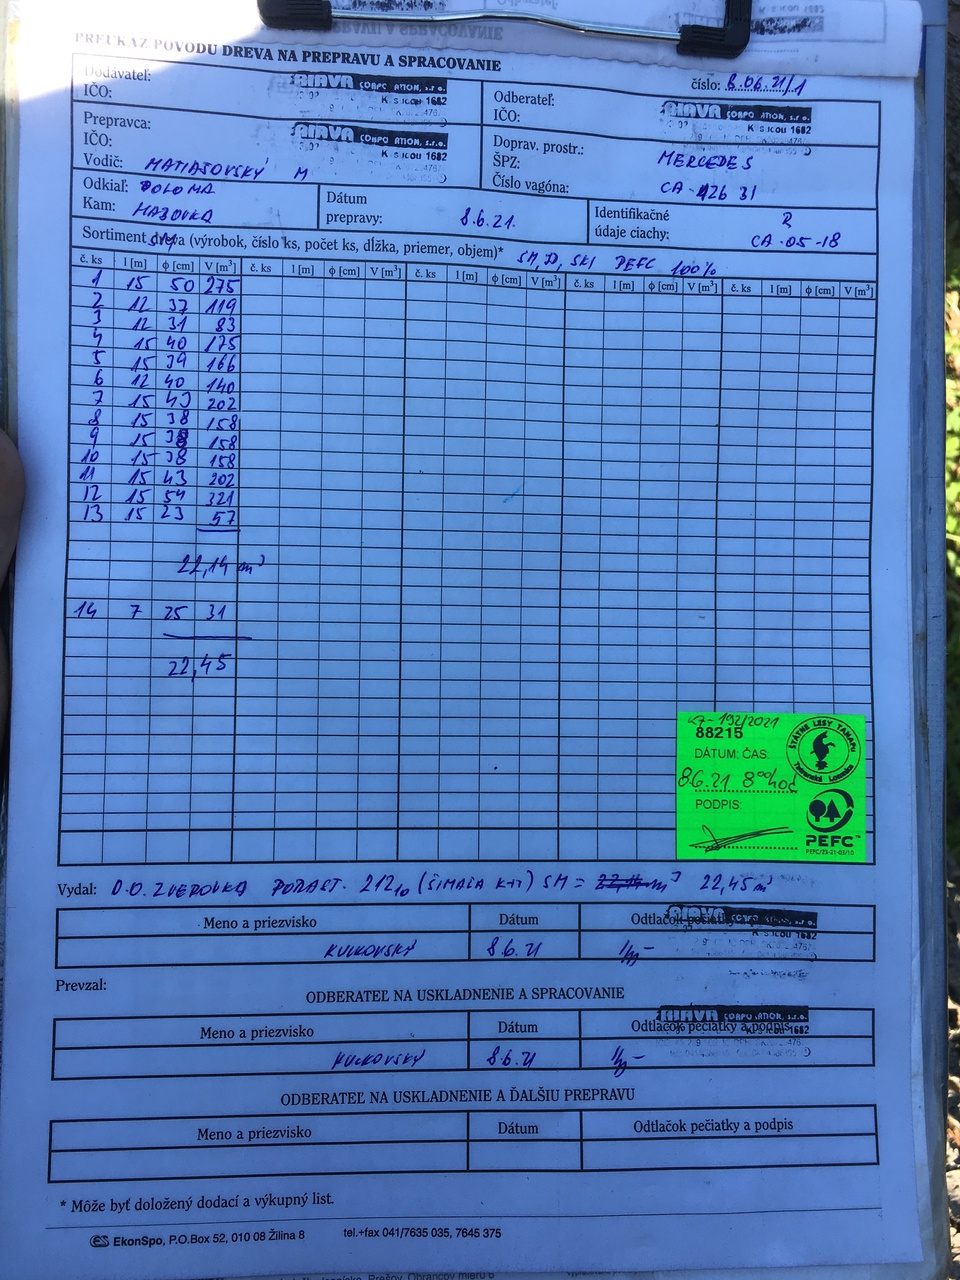 PREUKAZ PÔVODU DREVA NA PREPRAVU A SPRACOVANIE
číslo: 8.06.21/1
Dodávateľ:
IČO:
RIAVA CORPORATION, s.r.o.
Odberateľ:
IČO:
RIAVA CORPORATION, s.r.o.
Prepravca:
IČO:
RIAVA CORPORATION, s.r.o.
Vodič: MATIAŠOVSKÝ M
Doprav. prostr.: MERCEDES
ŠPZ:
Číslo vagóna: CA-426 31
Odkiaľ: POLOMA
Kam: HABOVKA
Dátum
prepravy: 8.6.21.
Identifikačné
údaje ciachy:
R
CA-05-18
Sortiment dreva (výrobok, číslo ks, počet ks, dĺžka, priemer, objem)* SM, JD, SKI PEFC 100%
SM
č. ks l [m] ϕ [cm] V [m³] č. ks l [m] ϕ [cm] V [m³] č. ks l [m] ϕ [cm] V [m³] č. ks l [m] ϕ [cm] V [m³] č. ks l [m] ϕ [cm] V [m³]
1 15 50 275
2 12 37 119
3 12 31 83
4 15 40 175
5 15 39 166
6 12 40 140
7 15 43 202
8 15 38 158
9 15 38 158
10 15 38 158
11 15 43 202
12 15 54 321
13 15 23 57
22,14 m³
14 7 25 31
22,45
47-192/2021
88215
DÁTUM; ČAS:
8.6.21 8⁰⁰ hod
PODPIS:
ŠTÁTNE LESY TANAPU
Tatranská Lomnica
PEFC™
PEFC/23-21-03/10
Vydal: O.O. ZVEROVKA PORAST. 212₁₀ (ŠIMALA K-17) SM = 22,14 m³ 22,45 m³
Meno a priezvisko Dátum Odtlačok pečiatky a podpis
KULKOVSKÝ 8.6.21
RIAVA CORPORATION, s.r.o.
Prevzal:
ODBERATEĽ NA USKLADNENIE A SPRACOVANIE
Meno a priezvisko Dátum Odtlačok pečiatky a podpis
RIAVA CORPORATION, s.r.o.
KULKOVSKÝ 8.6.21
ODBERATEĽ NA USKLADNENIE A ĎALŠIU PREPRAVU
Meno a priezvisko Dátum Odtlačok pečiatky a podpis
* Môže byť doložený dodací a výkupný list.
ES EkonSpo, P.O.Box 52, 010 08 Žilina 8 tel.+fax 041/7635 035, 7645 375